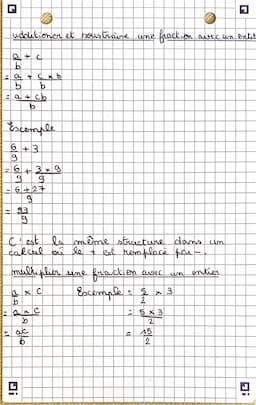 additionner et soustraire une fraction avec un entier
a/b + c
= a/b + c × b/b
= a + cb/b
Exemple
6/9 + 3
= 6/9 + 3 × 9/9
= 6 + 27/9
= 33/9
C'est la même structure dans un
calcul où le + est remplacé par -.
multiplier une fraction avec un entier
a/b × c Exemple = 5/2 × 3
= a × c/b = 5 × 3/2
= ac/b = 15/2